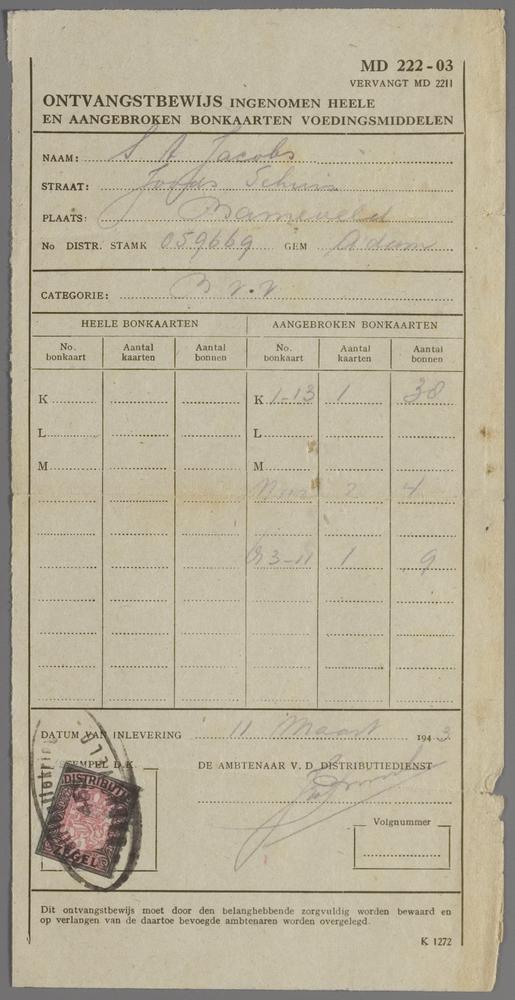 MD 222-03
VERVANGT MD 2211
ONTVANGSTBEWIJS INGENOMEN HEELE
EN AANGEBROKEN BONKAARTEN VOEDINGSMIDDELEN
NAAM: S A Jacobs
STRAAT: Joods Tehuis
PLAATS: Barneveld
No DISTR. STAMK 059669 GEM A'dam
CATEGORIE:
HEELE BONKAARTEN AANGEBROKEN BONKAARTEN
No. bonkaart Aantal kaarten Aantal bonnen No. bonkaart Aantal kaarten Aantal bonnen
K K 1-13 1 38
L L
M M
2 4
3-11 1 9
DATUM VAN INLEVERING 11 Maart 1943
STEMPEL D.K. DE AMBTENAAR V. D DISTRIBUTIEDIENST
DISTRIBUTIE
ZEGEL
Volgnummer
Dit ontvangstbewijs moet door den belanghebbende zorgvuldig worden bewaard en
op verlangen van de daartoe bevoegde ambtenaren worden overgelegd.
K 1272